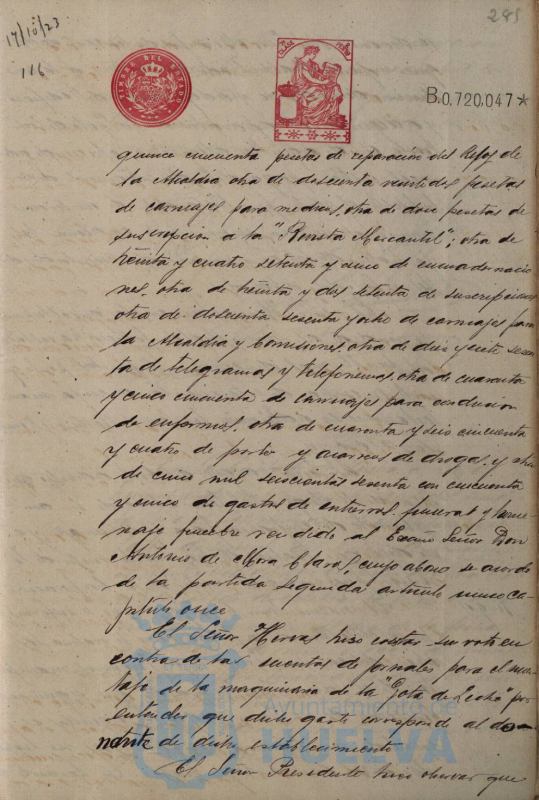 17/10/23
116
285
TIMBRE DEL ESTADO
CLASE
B.0.720,047*
quince cincuenta pesetas de reparación del Reloj de
la Alcaldía otra de doscienta veintidos pesetas
de carruajes para medicos, otra de doce pesetas de
suscripcion a la "Revista Mercantil"; otra de
treinta y cuatro setenta y cinco de encuadernacio
nes, otra de treinta y dos setenta de suscripciones
otra de doscienta sesenta y ocho de carruajes para
la Alcaldía y Comisiones, otra de diez y siete sesen
ta de telegramas y telefonemas, otra de cuarenta
y cinco cincuenta de carruajes para conducion
de enfermos, otra de cuarenta y seis cincuenta
y cuatro de porte y acarreos de drogas, y otra
de cinco mil seiscientas sesenta con cincuenta
y cinco de gastos de entierros, funeral y home
naje funebre rendido al Excmo Señor Don
Antonio de Mora Claros, cuyo abono se acordo
de la partida segunda articulo unico ca
pitulo once
El Señor Hervas hizo constar su voto en
contra de las cuentas de jornales para el mon
taje de la maquinaria de la "Gota de Leche" por
entender que dicho gasto corresponde al do
nante de dicho establecimiento
El Señor Presidente hizo observar que
Ayuntamiento de
HUELVA